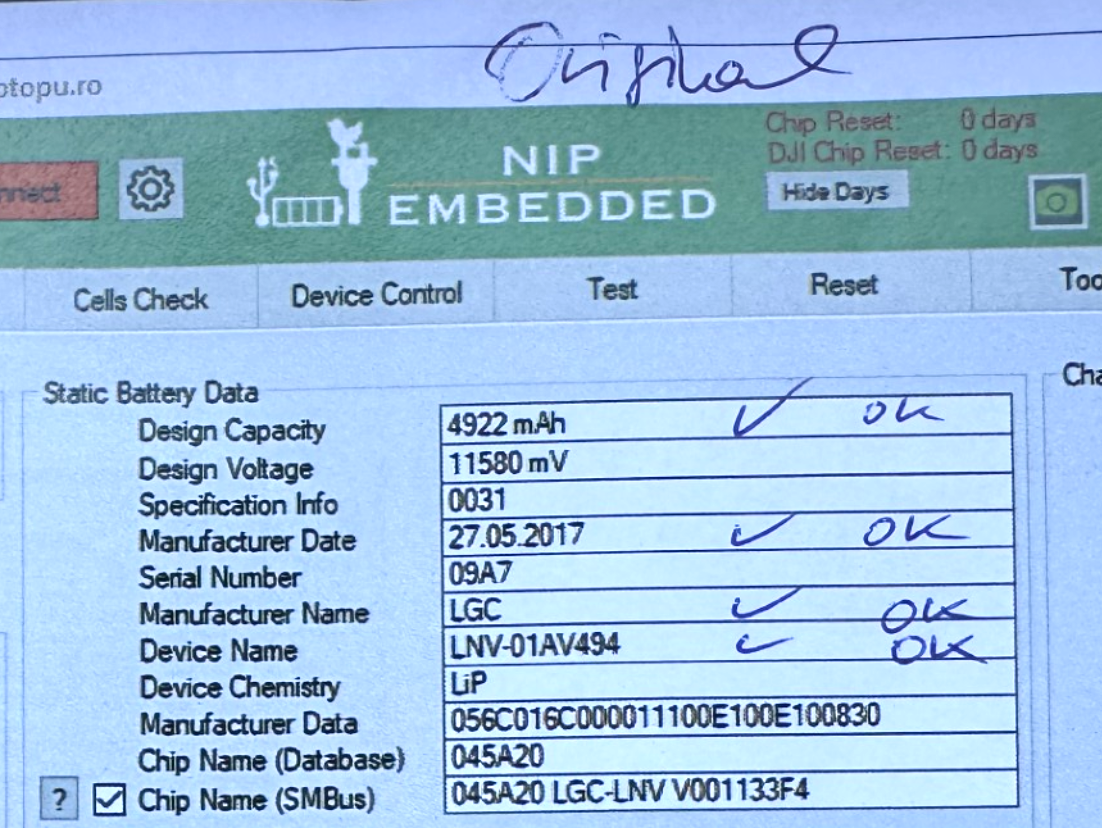 Original
otopu.ro
nnect
NIP
EMBEDDED
Chip Reset: 0 days
DJI Chip Reset: 0 days
Hide Days
Cells Check Device Control Test Reset Too
Static Battery Data
Cha
Design Capacity 4922 mAh ✓ OK
Design Voltage 11580 mV
Specification Info 0031
Manufacturer Date 27.05.2017 ✓ OK
Serial Number 09A7
Manufacturer Name LGC ✓ OK
Device Name LNV-01AV494 ✓ OK
Device Chemistry LiP
Manufacturer Data 056C016C000011100E100E100830
Chip Name (Database) 045A20
? Chip Name (SMBus) 045A20 LGC-LNV V001133F4